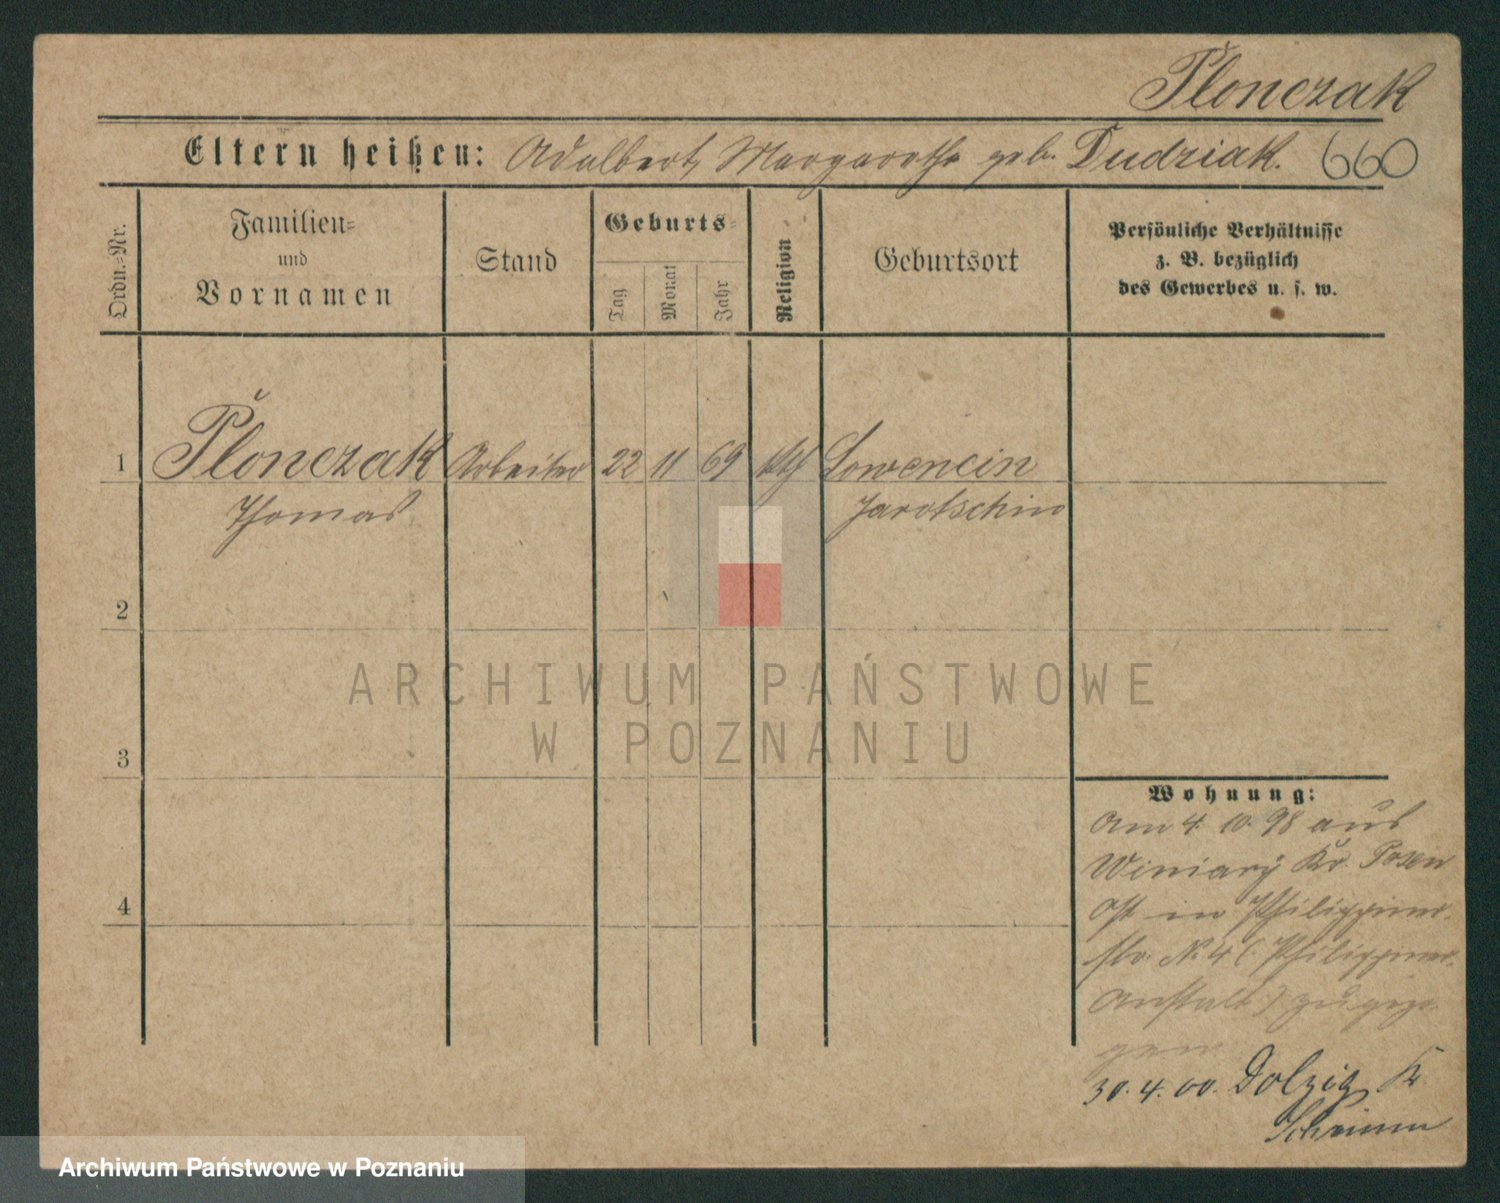 Płonczak
Eltern heißen: Adalbert, Margarethe geb. Dudziak. 660
Ordn.-Nr.
Familien- und Vornamen
Stand
Geburts-
Tag
Monat
Jahr
Religion
Geburtsort
Persönliche Verhältnisse
z. B. bezüglich
des Gewerbes u. s. w.
1 Płonczak Arbeiter 22 11 69 kth Lowencin
Thomas Jarotschin
2
3
4
ARCHIWUM PAŃSTWOWE
W POZNANIU
Wohnung:
Am 4. 10. 98 aus
Winiary Kr. Posen
Ost in Philippinen-
str. No 4 (Philippinen-
Anstalt) zugezo-
gen
30. 4. 00. Dolzig Kr
Schrimm
Archiwum Państwowe w Poznaniu